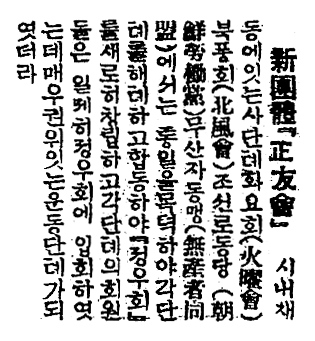 新團體『正友會』
시내재
동에잇는사단톄화요회(火曜會)
북풍회(北風會)조선로동당(朝
鮮勞働黨)무산자동맹(無産者同
盟)에서는 종일을목뎍하야각단
톄를해톄하고합동하야『정우회』
를새로히창립하고각단톄의회원
들은 일톄히정우회에 입회하엿
는데매우권위잇는운동단톄가되
엿더라